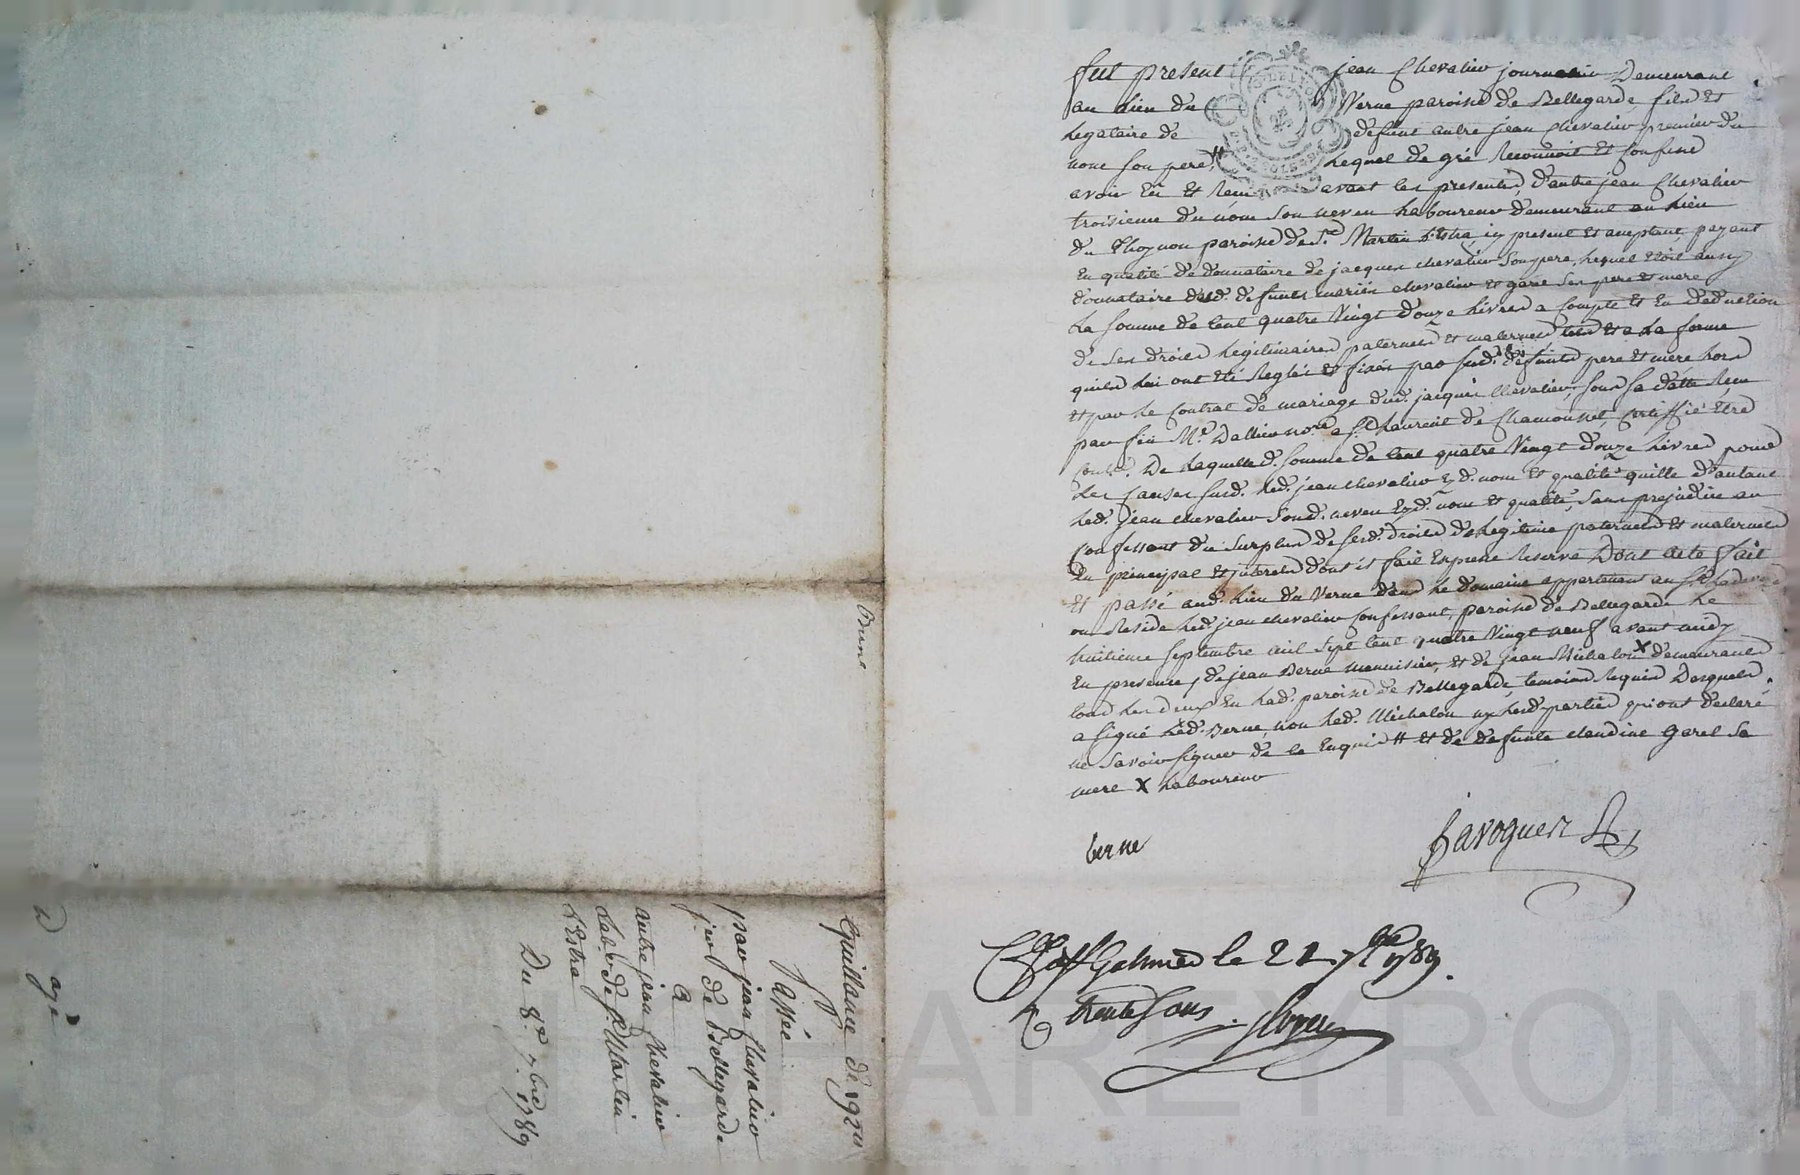 fut present jean Chevalier journalier Demeurant
au Lieu du Verne paroisse de Bellegarde, fils et
Legataire de defunt autre jean Chevalier premier du
nom son pere, # Lequel de gré Reconnoit et Confesse
avoir eu et Reçu avant les presentes, d'autre jean Chevalier
troisieme du nom son neveu Laboureur demeurant au Lieu
du Thoynon paroisse de St. Martin L'Estra, icy present et acceptant, payant
En qualité de donnataire de jacques chevalier son pere, lequel etoit aussy
donnataire desd. defunts mariés chevalier et garel ses pere et mere
La somme de Cent quatre Vingt douze Livres a Compte et en deduction
de ses droits Legitimaires paternels et maternels, tels et a La forme
quils Lui ont eté Reglés et fixés par sesd. defunts pere et mere hors
et par Le Contrat de mariage dud. jacques Chevalier, sous sa datte Reçu
par feu Me. Dallier nore. a St. Laurent de Chamousset, Certiffié être
De Laquelle d. somme de Cent quatre Vingt douze Livres pour
Les causes susd. Led. jean chevalier esd. nom et qualité quitte d'autant
Led. jean chevalier sond. neveu esd. nom et qualité, sans prejudice au
Confessant du surplus de sesd. droits de Legitime paternels et maternels
En principal et interets dont il fait Expresse Reserve Dont acte fait
et passé aud. Lieu du Verne dans Le domaine appartenant au Sr.
ou Reside Led. jean chevalier Confessant, paroisse de Bellegarde Le
huitieme septembre mil sept Cent quatre Vingt neuf avant midy
En presence de jean Berne menuisier, et de jean Michalon x demeurants
tous Les deux En Lad. paroisse de Bellegarde, temoins Requis Desquels
a signé Led. Berne, non Led. Michalon ny Lesd. parties qui ont declaré
ne savoir signer de ce Enquis # et de defunte claudine garel sa
mere x Laboureur
berne
Javogues
galmier le 21 7bre 1789.
trente sous.
Berne
Quittance de 192ll
Passée
par jean Chevalier
jer. de Bellegarde
a
autre jean Chevalier
Labr. de St. Martin
L'Estra
Du 8e. 7bre 1789
Pascal CHAREYRON